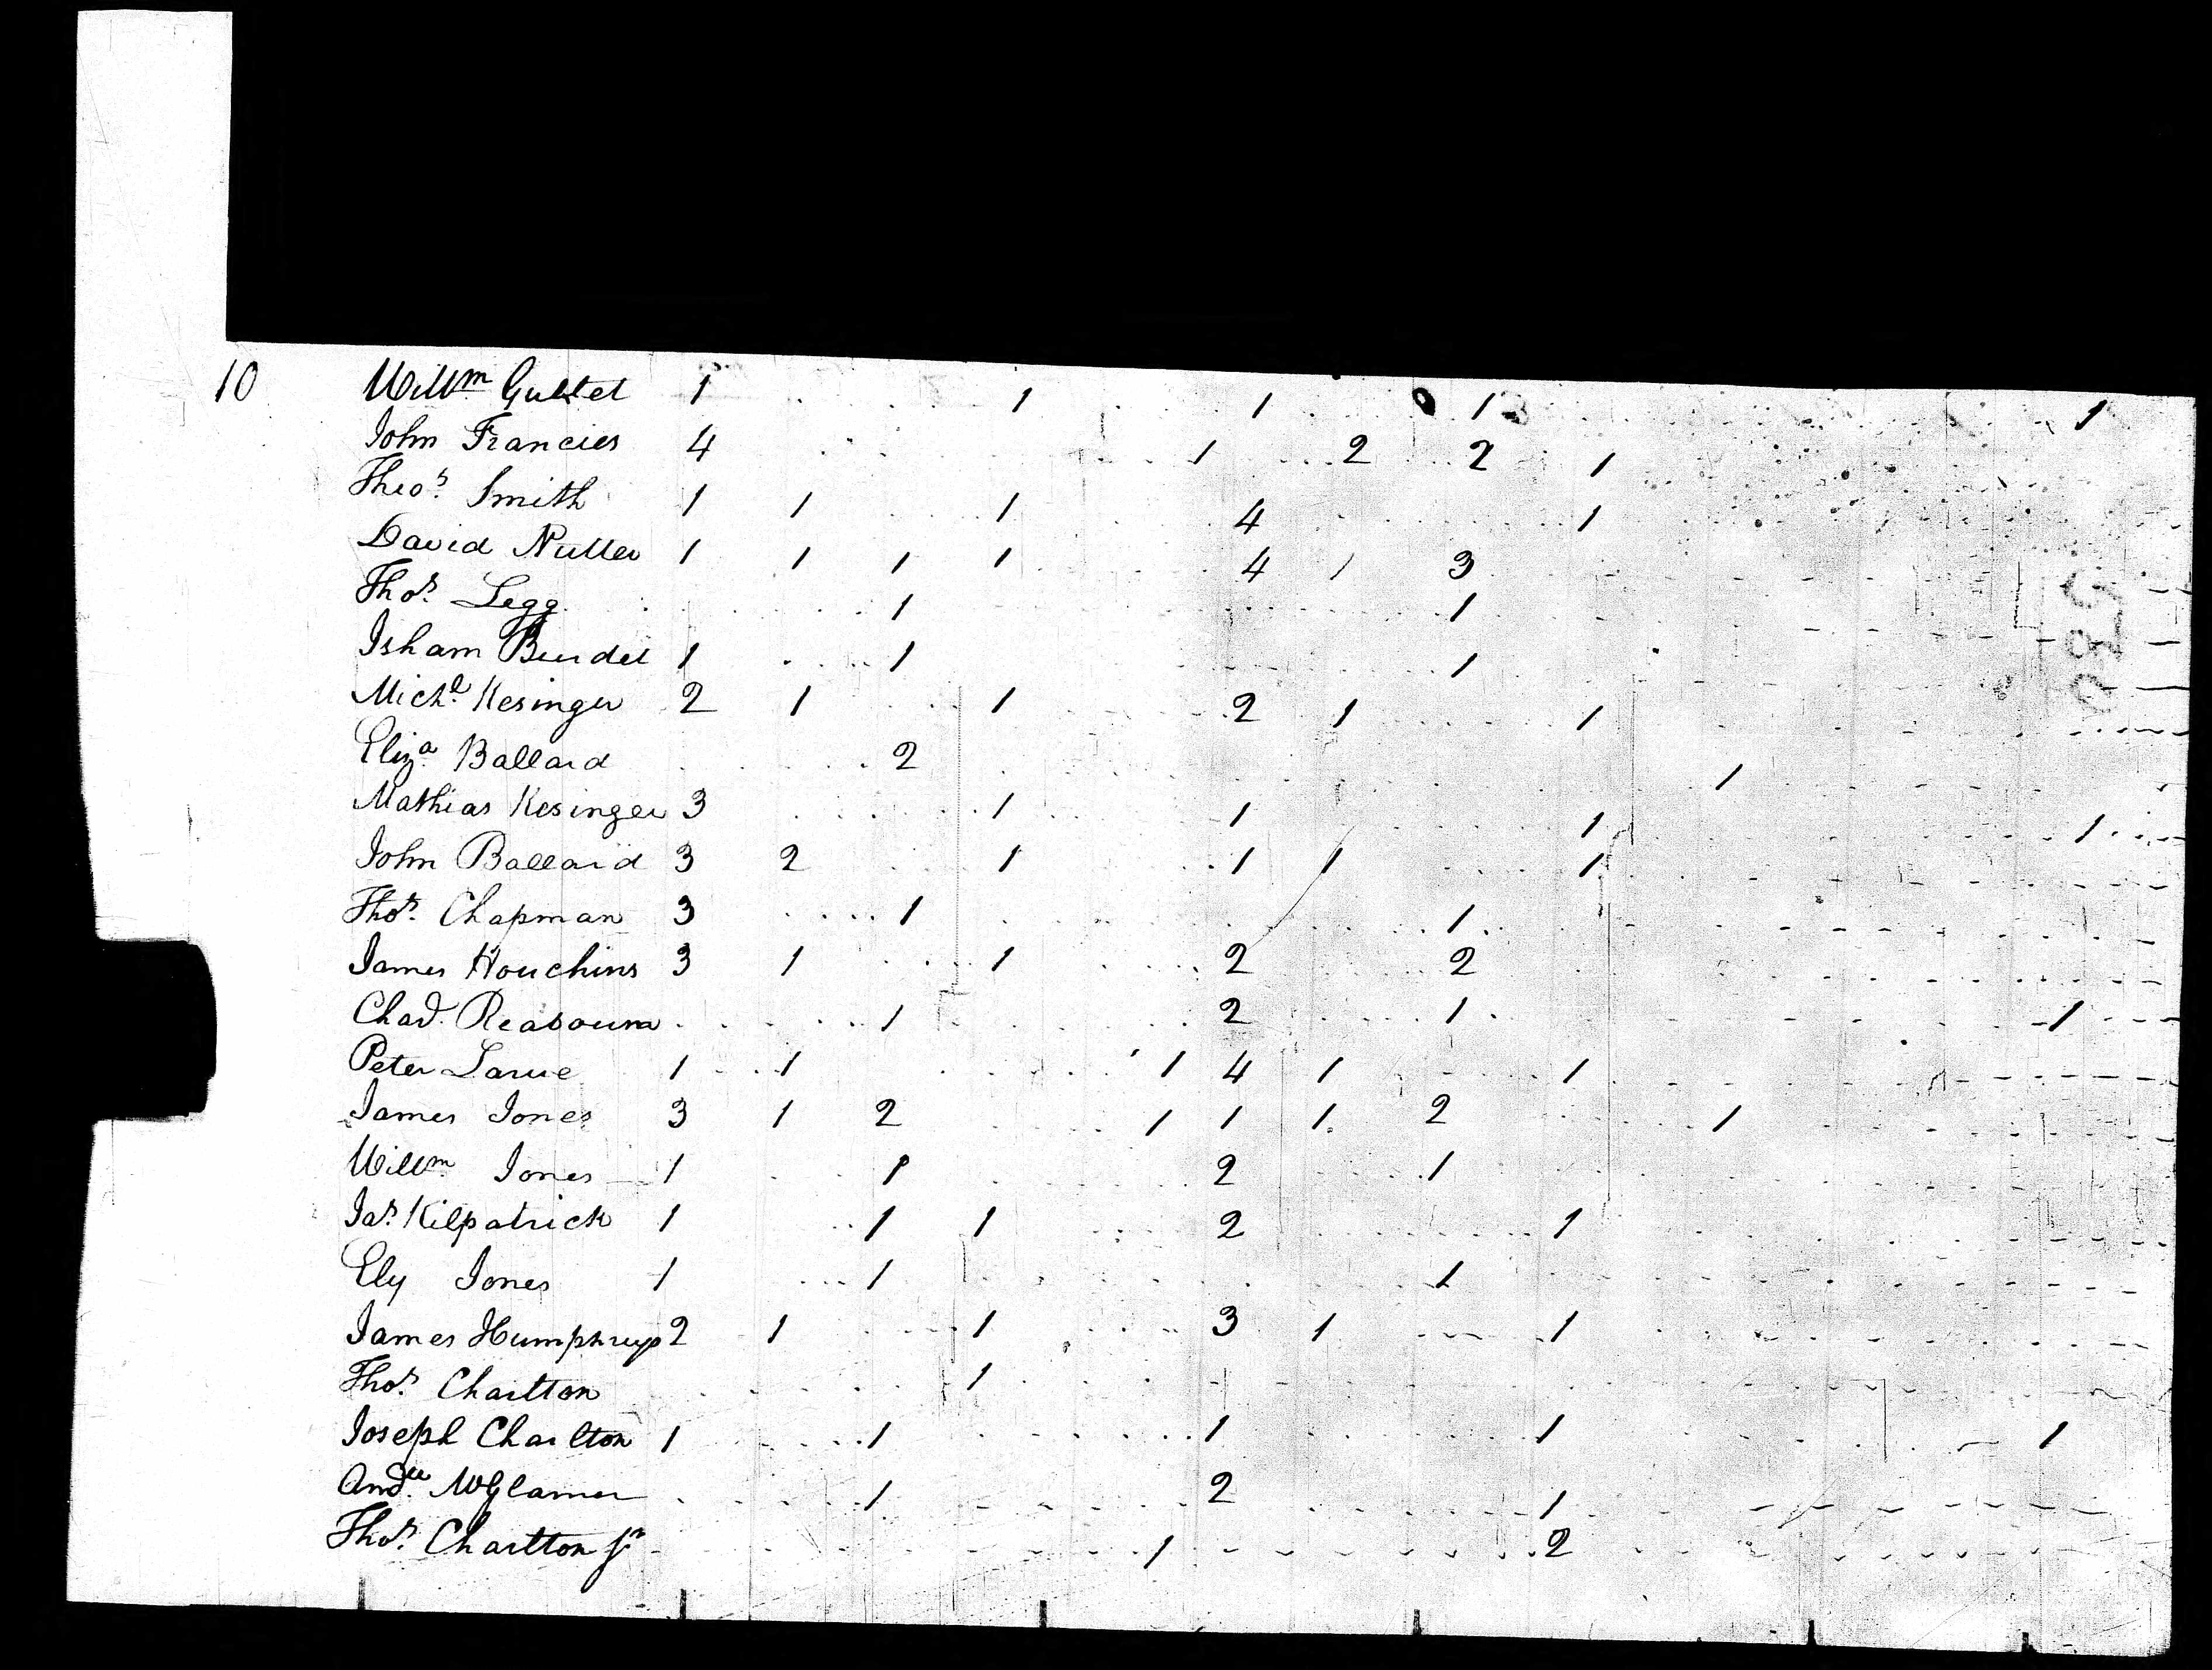 10 Willm Gullet 1 1 1 1 1
John Francies 4 1 2 2 1
Theos. Smith 1 1 1 4 1
David Nutter 1 1 1 1 4 1 3
Thos. Legg 1 1
Isham Burdet 1 1 1
Michl. Kesinger 2 1 1 2 1 1
Eliza. Ballard 2 1
Mathias Kesinger 3 1 1 1 1
John Ballard 3 2 1 1 1 1
Thos. Chapman 3 1 1
James Houchins 3 1 1 2 2
Chad. 1 2 1 1
Peter Larue 1 1 1 4 1 1
James Jones 3 1 2 1 1 1 2 1
Willm. Jones 1 1 2 1
Jas. Kilpatrick 1 1 1 2 1
Ely Jones 1 1 1
James Humphreys 2 1 1 3 1 1
Thos. Charlton 1
Joseph Charlton 1 1 1 1 1
Andw. 1 2 1
Thos. Charlton Sr 1 2